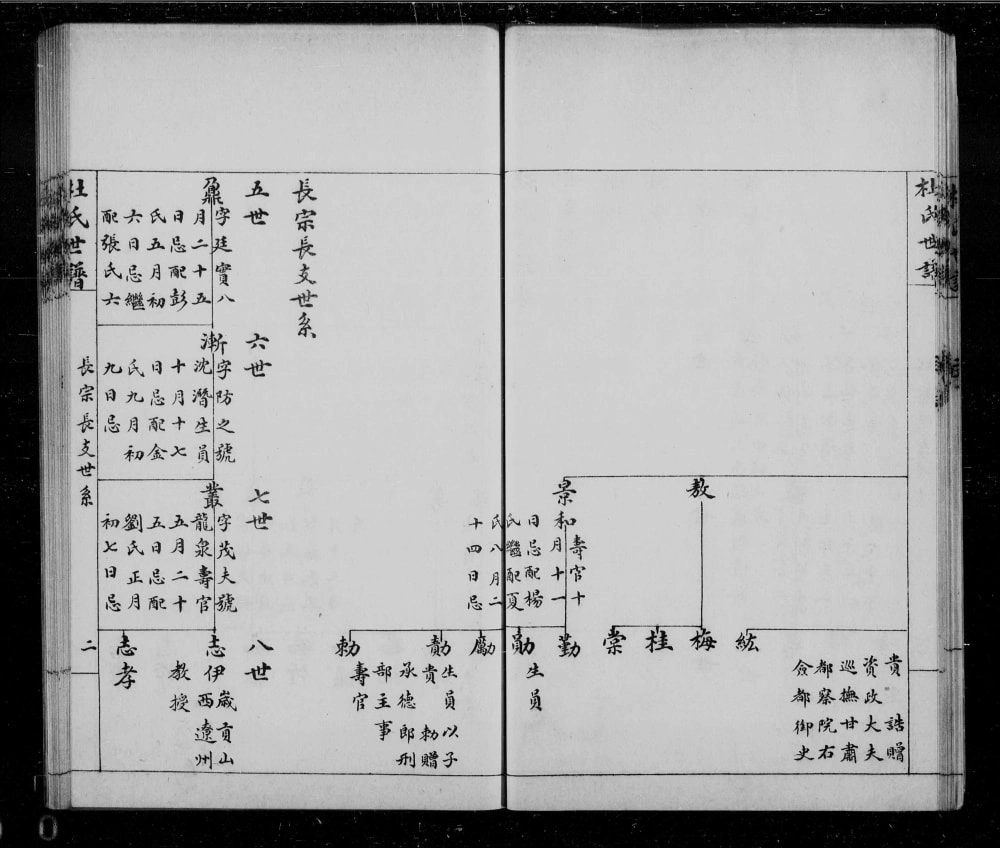 杜氏世譜
貴 誥贈
資政大夫
巡撫甘肅
都察院右
僉都御史
紘
敖
梅
桂
棠
景和
壽官十
月十一
日忌配楊
氏繼配夏
氏八月二
十四日忌
勤
勛
生員
勵
勣
生員以子
貴 勅贈
承德郎刑
部主事
勅
壽官
長宗長支世系
五世
六世
七世
八世
鼐
字廷實八
月二十五
日忌配彭
氏五月初
六日忌繼
配張氏六
漸
字防之號
沈潛生員
十月十七
日忌配金
氏九月初
九日忌
叢
字茂夫號
龍泉壽官
五月二十
五日忌配
劉氏正月
初七日忌
志伊
歲貢山
西遼州
教授
志孝
杜氏世譜
長宗長支世系
二